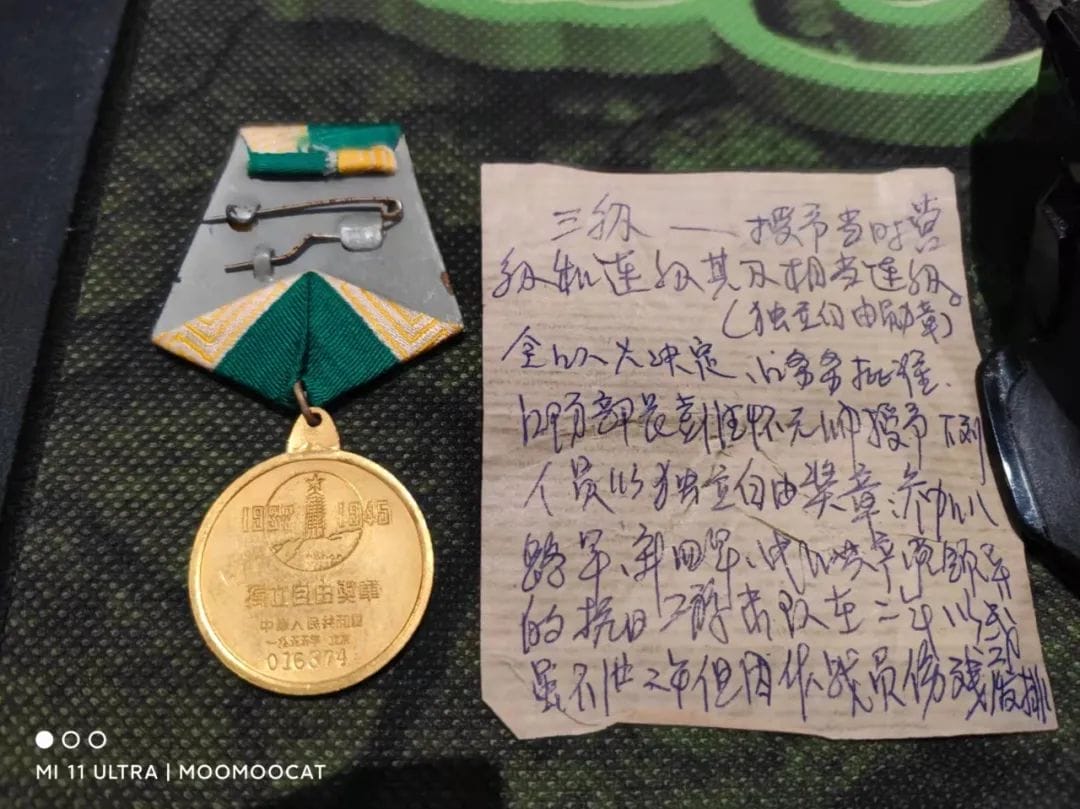 1937 1945
獨立自由獎章
中華人民共和國
一九五五年 北京
016374
三级 — 授予当时营
级和连级其及相当连级。
(独立自由勋章)
全国人大决定、国务院批准、
国防部长彭德怀元帅授予下列
人员以独立自由奖章:参加八
路军、新四军、中国共产党领导
的抗日 击队在二年以
虽不 二年但因作战员伤残废排
MI 11 ULTRA | MOOMOOCAT